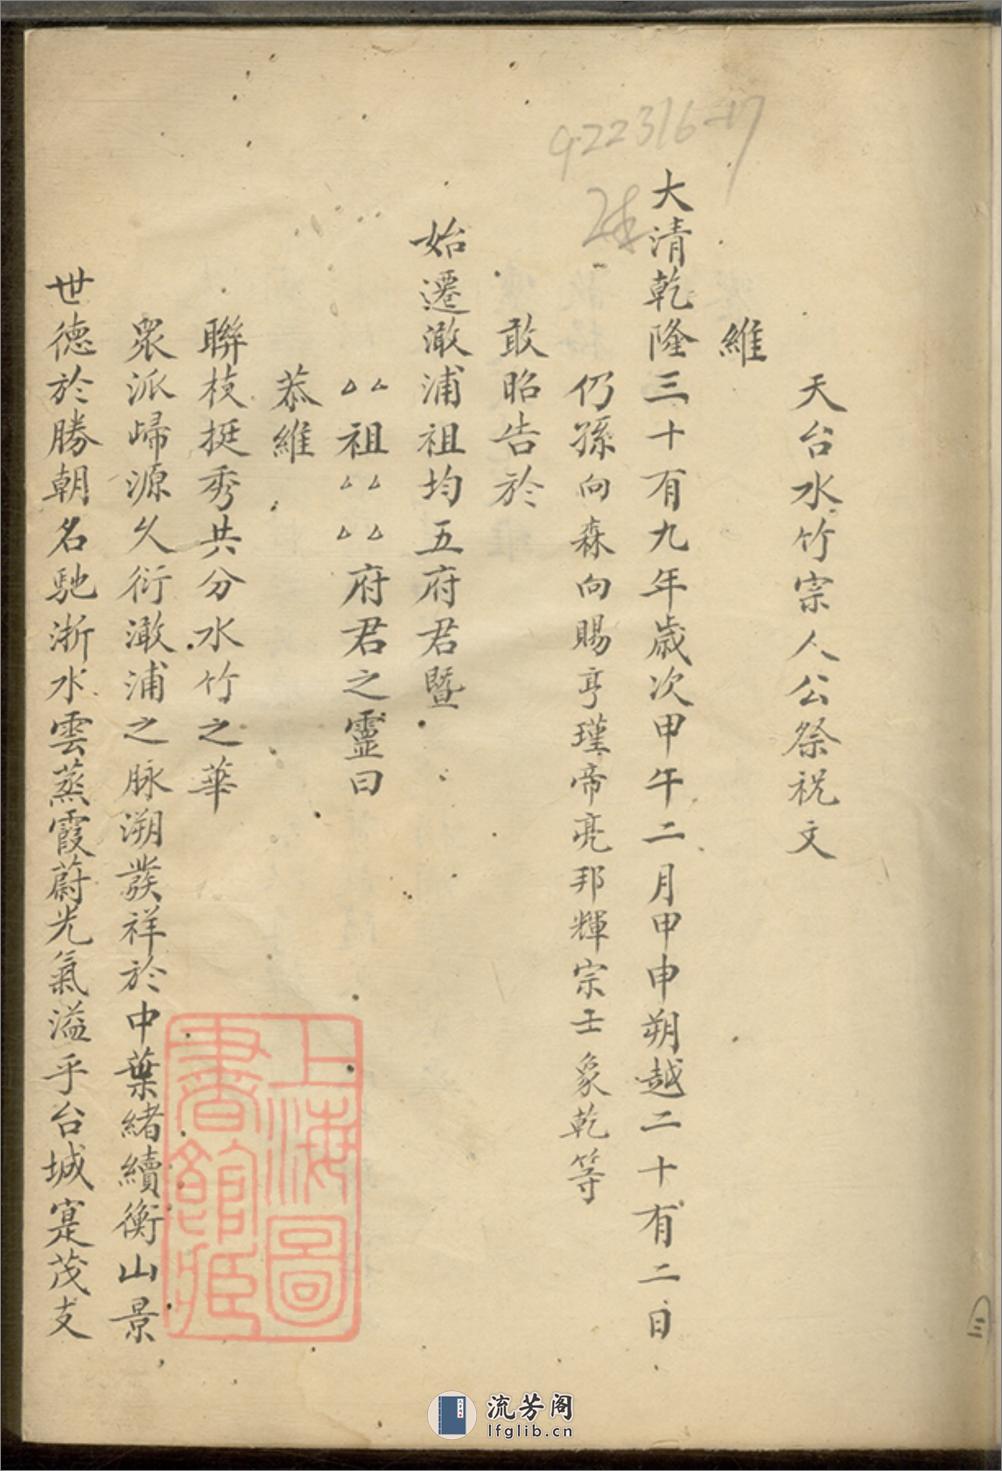 天台水竹宗人公祭祝文
維
大清乾隆三十有九年歲次甲午二月甲申朔越二十有二日
仍孫向森向賜亨瑾帝亮邦輝宗壬象乾等
敢昭告於
始遷澉浦祖均五府君暨
厶厶祖厶厶厶厶府君之靈曰
恭維
聯枝挺秀共分水竹之華
衆派歸源久衍澉浦之脉溯發祥於中葉緒續衡山景
世德於勝朝名馳浙水雲蒸霞蔚光氣溢乎台城寔茂支
922316-17
上海圖書館藏
三
流芳阁
lfglib.cn